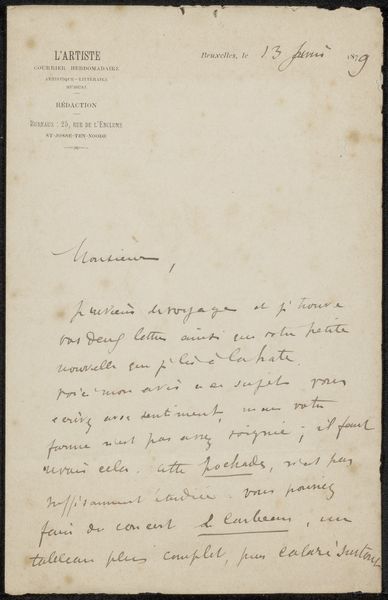 L'ARTISTE
COURRIER HEBDOMADAIRE
ARTISTIQUE - LITTÉRAIRE
MUSICAL
RÉDACTION
BUREAUX : 25, RUE DE L'ENCLUME
ST-JOSSE-TEN-NOODE
Bruxelles, le 13 1879
Monsieur,
je reviens de voyage et je trouve
vos deux lettres ainsi que votre petite
nouvelle que j'ai lu à la hâte.
Voici mon avis à ce sujet vous
écrivez avec sentiment, mais votre
forme n'est pas assez soignée ; il faut
revoir cela. Cette pochade, n'est pas
suffisamment hardie. Vous pourriez
faire du concert le Corbeau, un
tableau plus complet, plus coloré surtout